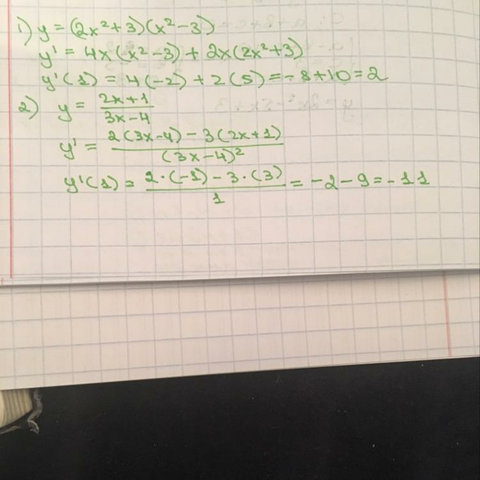 1) y = (2x²+3)(x²-3)
y' = 4x(x²-3) + 2x(2x²+3)
y'(1) = 4(-2) + 2(5) = -8+10 = 2
2) y = (2x+1)/(3x-4)
y' = (2(3x-4) - 3(2x+1))/(3x-4)²
y'(1) = (2·(-1) - 3·(3))/1 = -2-9 = -11